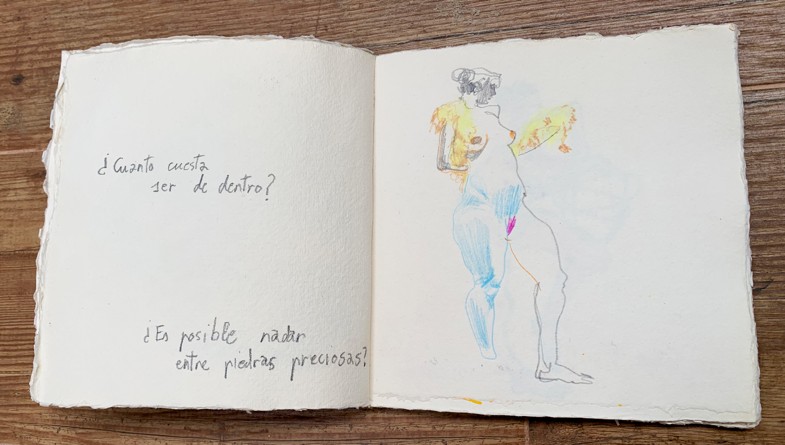 ¿Cuanto cuesta
ser de dentro?
¿Es posible nadar
entre piedras preciosas?